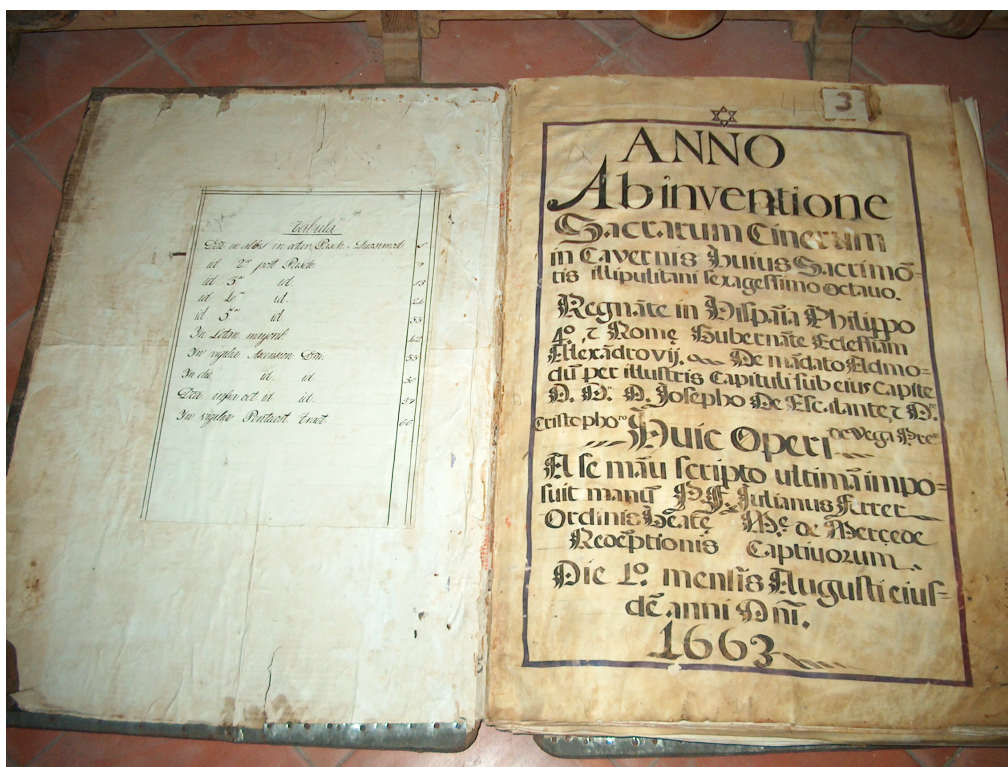 tabula
Dca in albis in octav. Pasch. Quasimodo 1
id 2ª post Pasch.
id 3ª id. 13
id 4ª id. 24
id 5ª id. 33
In Letan. majorib. 42
In vigilia Ascension. Dni.
In die id. id. 50
Dca infra oct id id. 57
In vigilia Pentecost. tract. 60
3
ANNO
Ab inventione
Sacrarum Cinerum
in Cavernis huius Sacrimõ-
tis illipulitani sexagessimo octavo.
Regnãte in Hispañia Philippo
4º. τ Rome Gubernãte Eclesiam
Alexãdro vij. De mãdato Admo-
dũ per illustris Capituli sub eius capite
D. Dr. D. Josepho De Escalante τ Dr.
Cristophoro de Vega Pre.
Huic Operi
A se mãu scripto ultimã impo-
suit manũ P. F. Julianus Ferrer
Ordinis beatę Mę. de Mercede
Redẽptionis Captivorum.
Die 1º. mensis Augusti eius-
dẽ anni Dñi.
1663